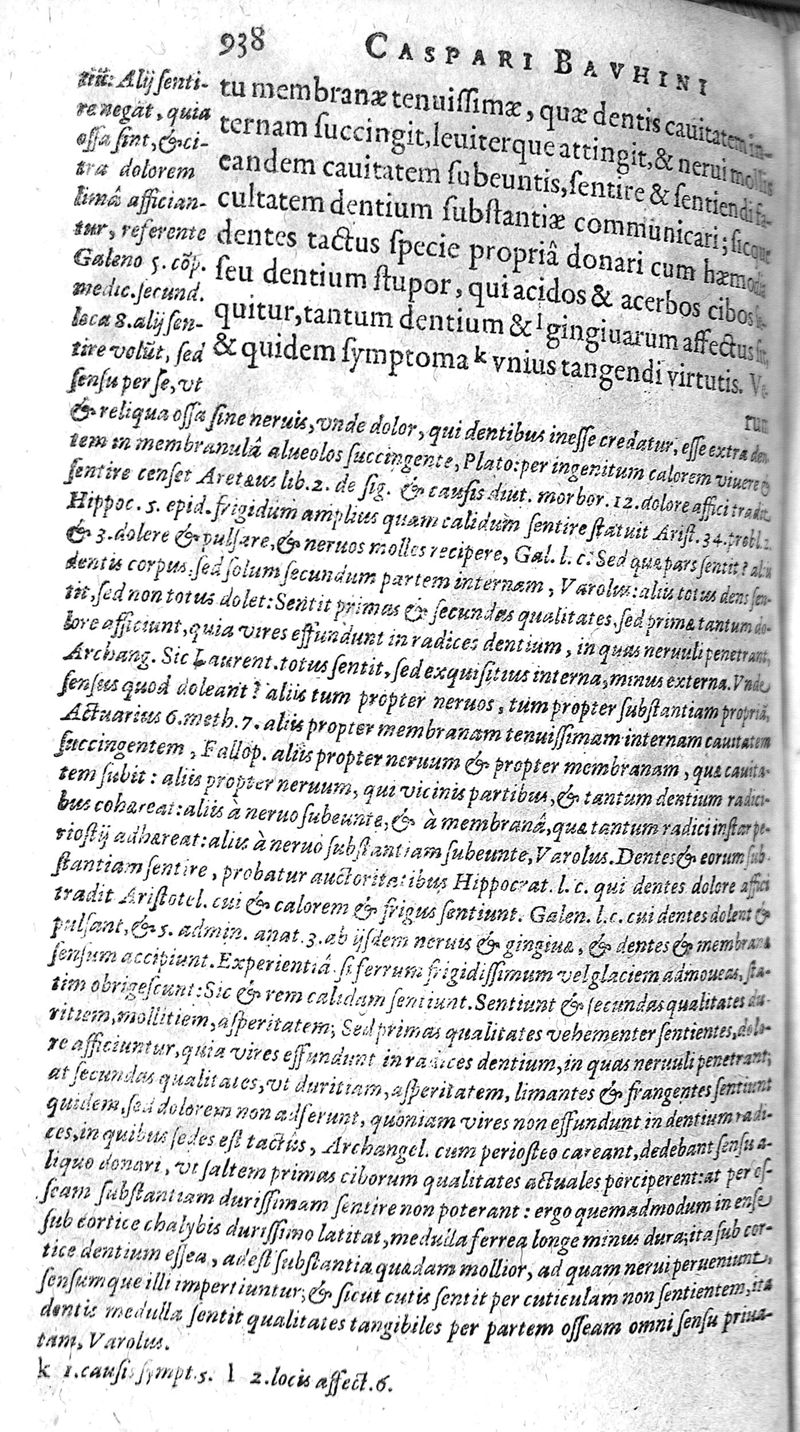 938 CASPARI BAVHINI
tu membranæ tenuissimæ, quæ dentis cauitatem in-
ternam succingit, leuiterque attingit, & nerui mollis
eandem cauitatem subeuntis, sentire & sentiendi fa-
cultatem dentium substantiæ communicari; sicque
dentes tactus specie propriâ donari cum hæmodia
seu dentium stupor, qui acidos & acerbos cibos se-
quitur, tantum dentium & l gingiuarum affectus sit,
& quidem symptoma k vnius tangendi virtutis. Ve-
rum
Alij senti-
re negāt, quia
ossa sint, & ci-
tra dolorem
limâ affician-
tur, referente
Galeno 5. cōp.
medic. secund.
loca 8. alij sen-
tire volūt, sed
sensu per se, vt
& reliqua ossa sine neruis, vnde dolor, qui dentibus inesse credatur, esse extra den-
tem in membranulâ alueolos succingente, Plato: per ingenitum calorem viuere &
sentire censet Aretæus lib. 2. de sig. & causis diut. morbor. 12. dolore affici tradit
Hippoc. 5. epid. frigidum amplius quam calidum sentire statuit Arist. 34. probl. 2.
& 3. dolere & pulsare, & neruos molles recipere, Gal. l. c. Sed quæ pars sentit? alij
dentis corpus, sed solum secundum partem internam, Varolus: alius totus dens sen-
tit, sed non totus dolet: Sentit primas & secundas qualitates, sed primæ tantum do-
lore afficiunt, quia vires effundunt in radices dentium, in quas neruuli penetrant,
Archang. Sic Laurent. totus sentit, sed exquisitius interna, minus externa. Vnde
sensus quod doleant? aliis tum propter neruos, tum propter substantiam propriā,
Actuarius 6. meth. 7. aliis propter membranam tenuissimam internam cauitatem
succingentem, Fallop. aliis propter neruum & propter membranam, quæ cauita-
tem subit: aliis propter neruum, qui vicinis partibus, & tantum dentium radici-
bus cohæreat: aliis à neruo subeunte, & à membranâ, quæ tantum radici instar pe-
riostij adhæreat: aliis à neruo substantiam subeunte, Varolus. Dentes & eorum sub-
stantiam sentire, probatur auctoritatibus Hippocrat. l. c. qui dentes dolore affici
tradit Aristotel. cui & calorem & frigus sentiunt. Galen. l. c. cui dentes dolent &
pulsant, & 5. admin. anat. 3. ab ijsdem neruis & gingiuæ, & dentes & membrana
sensum accipiunt. Experientiâ. si ferrum frigidissimum vel glaciem admoueas, sta-
tim obrigescunt: Sic & rem calidam sentiunt. Sentiunt & secundas qualitates du-
ritiem, mollitiem, asperitatem; Sed primas qualitates vehementer sentientes, dolo-
re afficiuntur, quia vires effundunt in radices dentium, in quas neruuli penetrant;
at secundas qualitates, vt duritiam, asperitatem, limantes & frangentes sentiunt
quidem, sed dolorem non adferunt, quoniam vires non effundunt in dentium radi-
ces, in quibus sedes est tactus, Archangel. cum periosteo careant, dedebant sensu a-
liquo donari, vt saltem primas ciborum qualitates actuales perciperent: at per os-
seam substantiam durissimam sentire non poterant: ergo quemadmodum in ense
sub cortice chalybis durissimo latitat, medulla ferrea longe minus dura; ita sub cor-
tice dentium essea, adest substantia quædam mollior, ad quam nerui perueniunt,
sensumque illi impertiuntur; & sicut cutis sentit per cuticulam non sentientem, ita
dentis medulla sentit qualitates tangibiles per partem osseam omni sensu priua-
tam, Varolus.
k 1. causis sympt. 5. l 2. locis affect. 6.